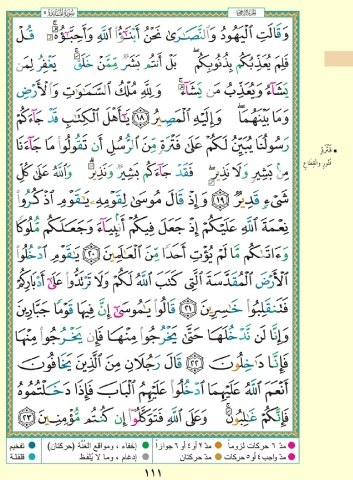 وَقَالَتِ الْيَهُودُ وَالنَّصَارَىٰ نَحْنُ أَبْنَاءُ اللَّهِ وَأَحِبَّاؤُهُ ۚ قُلْ
فَلِمَ يُعَذِّبُكُم بِذُنُوبِكُم ۖ بَلْ أَنتُم بَشَرٌ مِّمَّنْ خَلَقَ ۚ يَغْفِرُ لِمَن
يَشَاءُ وَيُعَذِّبُ مَن يَشَاءُ ۚ وَلِلَّهِ مُلْكُ السَّمَاوَاتِ وَالْأَرْضِ
وَمَا بَيْنَهُمَا ۖ وَإِلَيْهِ الْمَصِيرُ ﴿١٨﴾ يَا أَهْلَ الْكِتَابِ قَدْ جَاءَكُمْ
رَسُولُنَا يُبَيِّنُ لَكُمْ عَلَىٰ فَتْرَةٍ مِّنَ الرُّسُلِ أَن تَقُولُوا مَا جَاءَنَا
مِن بَشِيرٍ وَلَا نَذِيرٍ ۖ فَقَدْ جَاءَكُم بَشِيرٌ وَنَذِيرٌ ۗ وَاللَّهُ عَلَىٰ كُلِّ
شَيْءٍ قَدِيرٌ ﴿١٩﴾ وَإِذْ قَالَ مُوسَىٰ لِقَوْمِهِ يَا قَوْمِ اذْكُرُوا
نِعْمَةَ اللَّهِ عَلَيْكُمْ إِذْ جَعَلَ فِيكُمْ أَنبِيَاءَ وَجَعَلَكُم مُّلُوكًا
وَآتَاكُم مَّا لَمْ يُؤْتِ أَحَدًا مِّنَ الْعَالَمِينَ ﴿٢٠﴾ يَا قَوْمِ ادْخُلُوا
الْأَرْضَ الْمُقَدَّسَةَ الَّتِي كَتَبَ اللَّهُ لَكُمْ وَلَا تَرْتَدُّوا عَلَىٰ أَدْبَارِكُمْ
فَتَنقَلِبُوا خَاسِرِينَ ﴿٢١﴾ قَالُوا يَا مُوسَىٰ إِنَّ فِيهَا قَوْمًا جَبَّارِينَ
وَإِنَّا لَن نَّدْخُلَهَا حَتَّىٰ يَخْرُجُوا مِنْهَا فَإِن يَخْرُجُوا مِنْهَا
فَإِنَّا دَاخِلُونَ ﴿٢٢﴾ قَالَ رَجُلَانِ مِنَ الَّذِينَ يَخَافُونَ
أَنْعَمَ اللَّهُ عَلَيْهِمَا ادْخُلُوا عَلَيْهِمُ الْبَابَ فَإِذَا دَخَلْتُمُوهُ
فَإِنَّكُمْ غَالِبُونَ ۚ وَعَلَى اللَّهِ فَتَوَكَّلُوا إِن كُنتُم مُّؤْمِنِينَ ﴿٢٣﴾
فَتْرَةٍ
فُتُورٍ وَانْقِطَاعٍ
مدّ ٦ حركات لزوماً مدّ ٢ أو ٤ أو ٦ جوازاً إخفاء، ومواقع الغُنَّة (حركتان) تفخيم
مدّ واجب ٤ أو ٥ حركات مدّ حركتان إدغام، وما لا يُلفَظ قلقلة
١١١